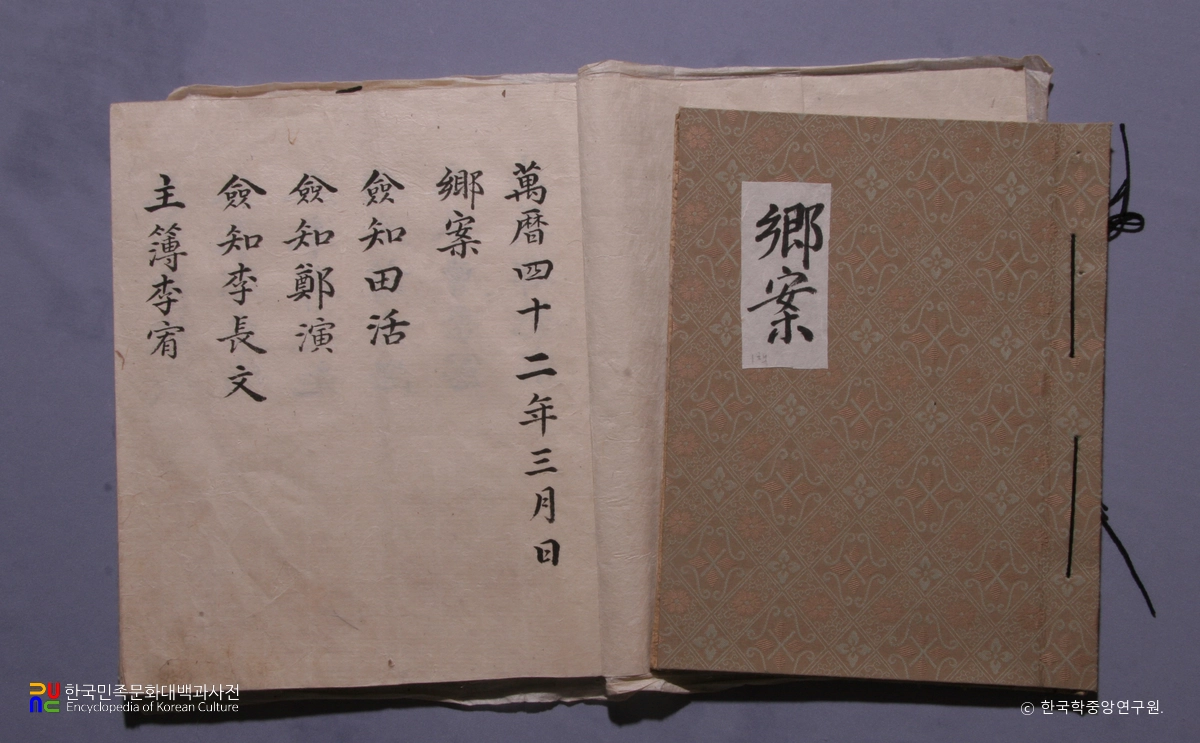 萬曆四十二年三月日
鄉案
僉知田活
僉知鄭演
僉知李長文
主簿李宥
鄉案
한국민족문화대백과사전
Encyclopedia of Korean Culture
ⓒ 한국학중앙연구원.